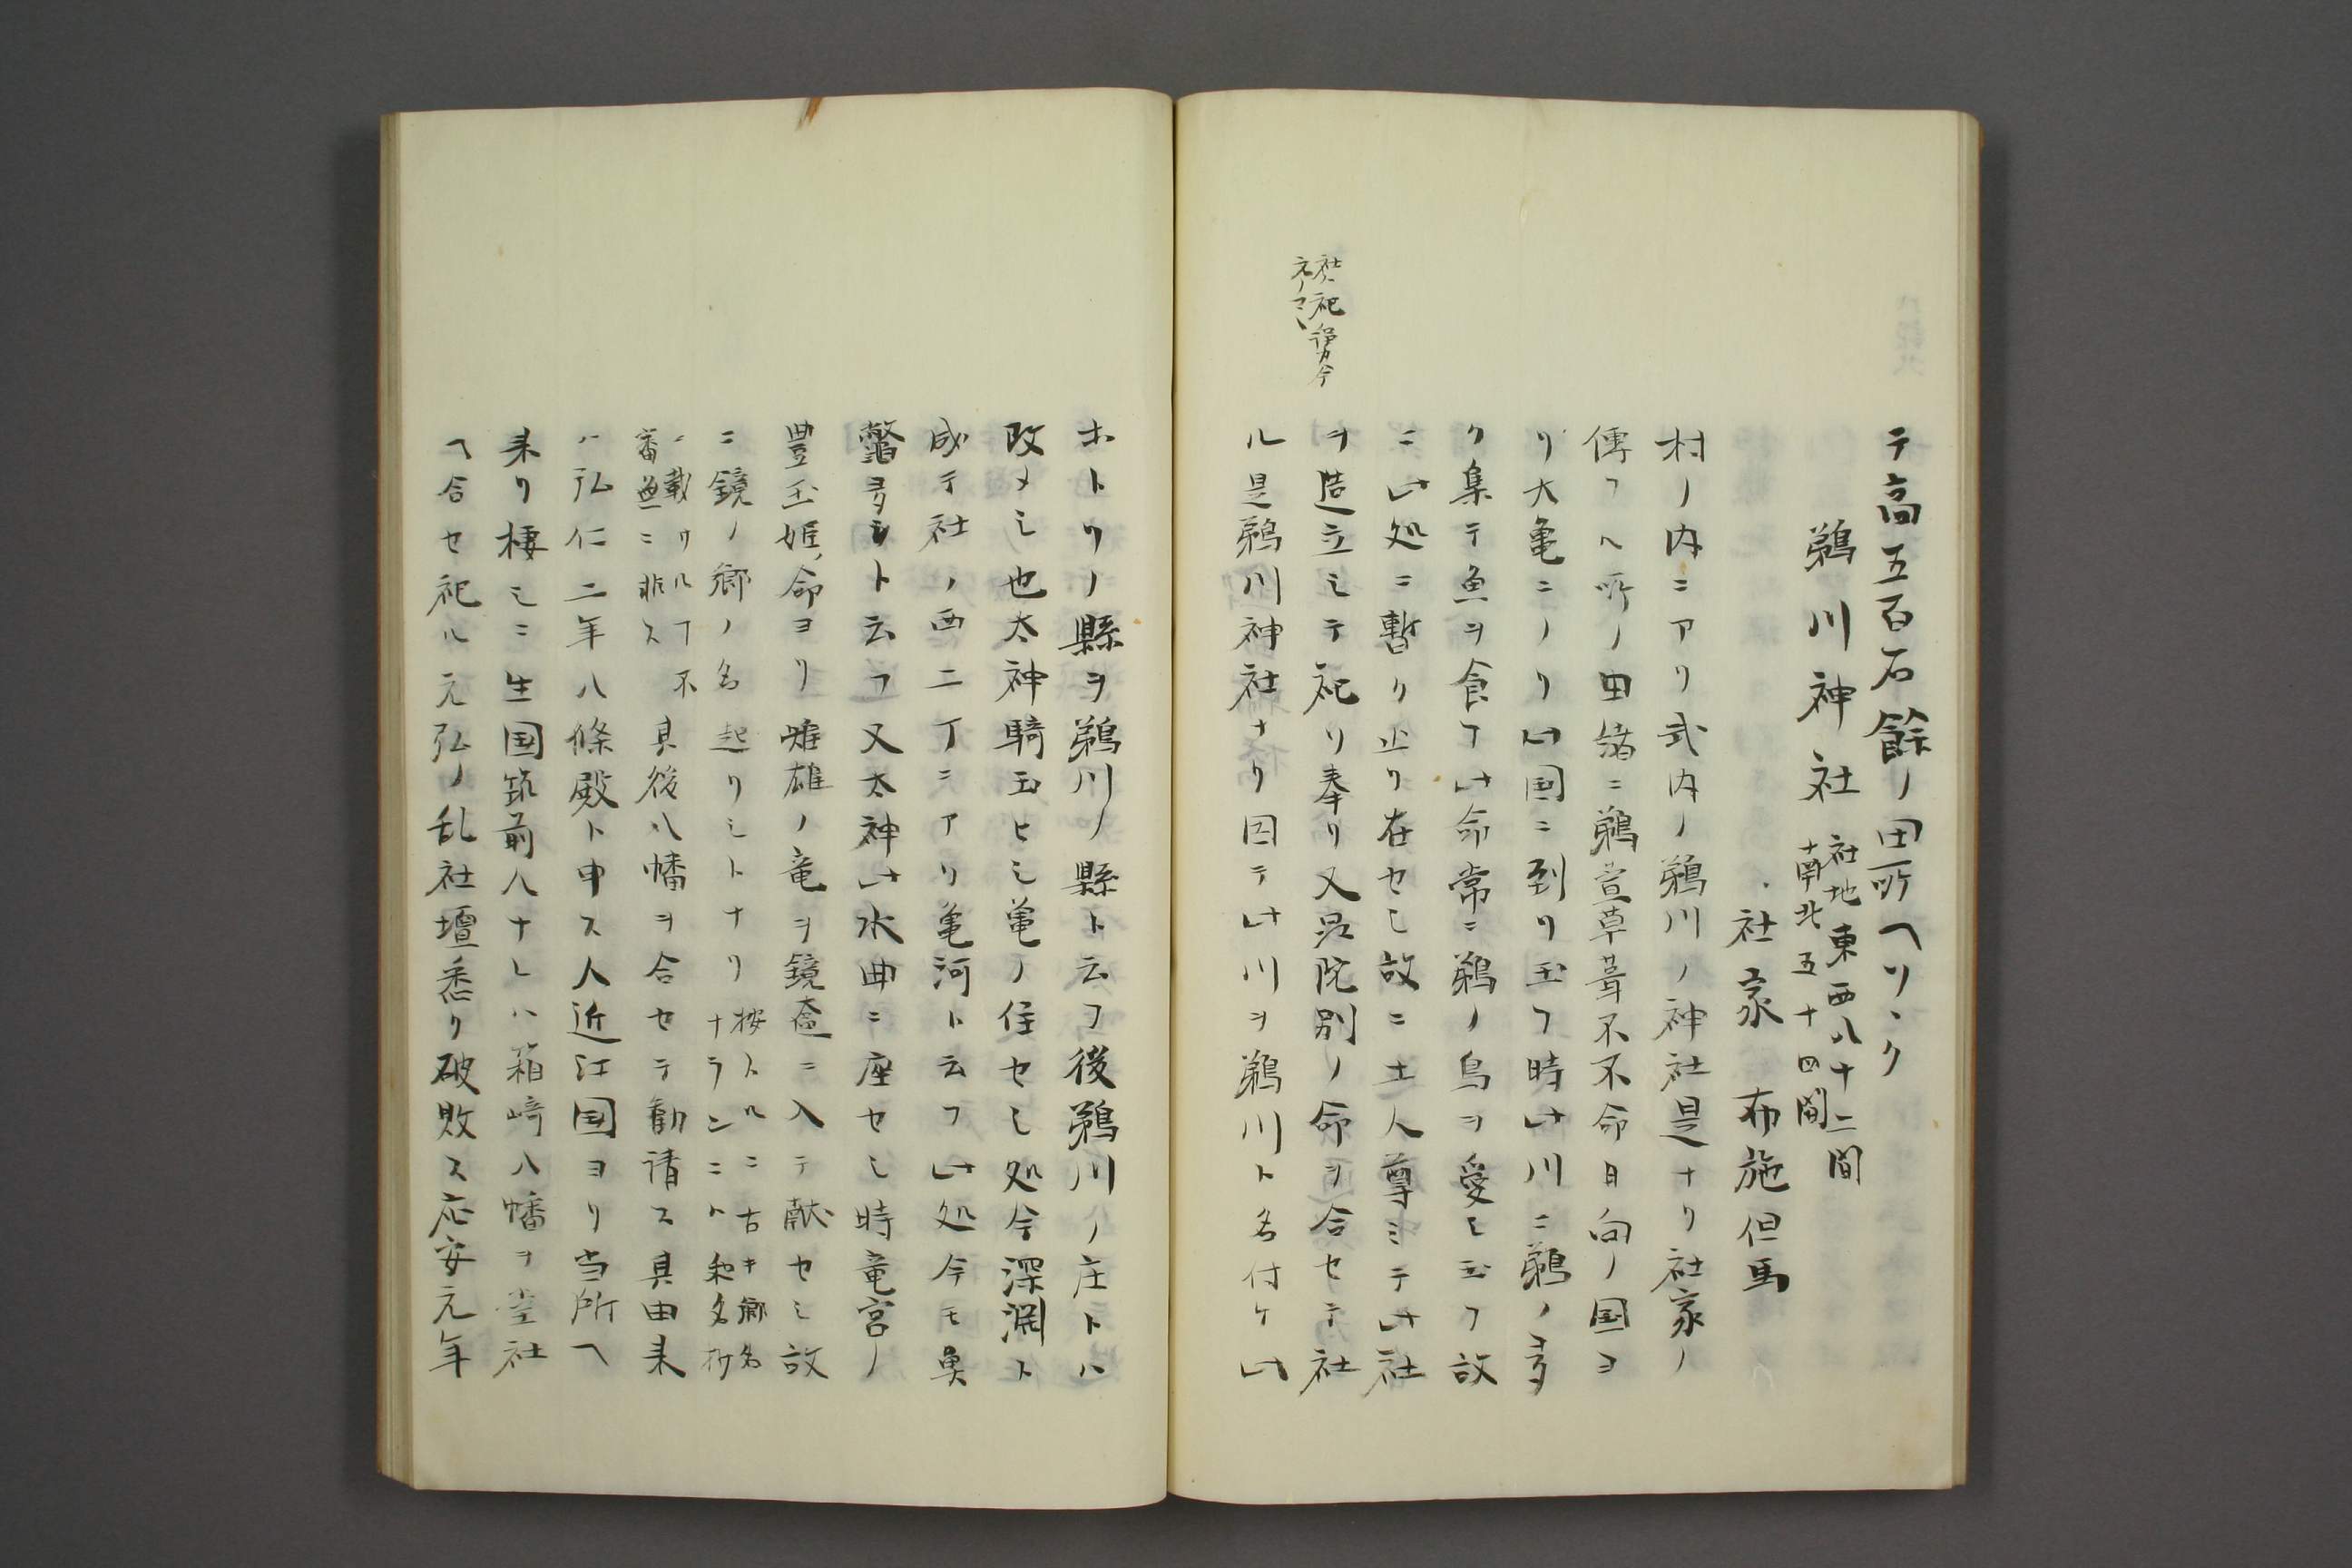 テ高五百石餘ノ田所ヘリヽク
鵜川神社
社地東西八十二間
南北五十四間
社家 布施但馬
村ノ内ニアリ式内ノ鵜川ノ神社是ナリ社家ノ
傳フヘ所ノ由緒ニ鵜萱草葺不不命日向ノ国ヨ
リ大亀ニノリ此国ニ到リ玉フ時此川ニ鵜ノ多
ク集テ魚ヲ食フ此命常ニ鵜ノ鳥ヲ愛シ玉フ故
ニ此処ニ暫ク止リ在セシ故ニ土人尊ミテ此社
ヲ造立シテ祀リ奉リ又昆陀別ノ命ヲ合セテ社
ル是鵜川神社ナリ因テ此川ヲ鵜川ト名付ケ此
ホトリノ縣ヲ鵜川ノ縣ト云フ後鵜川ノ庄トハ
改メシ也太神騎玉ヒシ亀ノ住セシ処今深淵ト
成テ社ノ西二丁ニアリ亀河ト云フ此処今モ奥
鼈多シト云フ又太神此水曲ニ座セシ時竜宮ノ
豊玉姫ノ命ヨリ雌雄ノ竜ヲ鏡奩ニ入テ献セシ故
ニ鏡ノ郷ノ名起リシトナリ
按スルニ古キ郷名
ナランニハ和名抄
ニ載リルフ不
審無ニ非ス
其後八幡ヲ合セテ勧請ス其由来
ハ弘仁二年八條殿ト申ス人近江国ヨリ当所ヘ
来リ棲シニ生国筑前人ナレハ箱崎八幡ヲ當社
ヘ合セ祀ル元弘ノ乱社壇悉ク破敗ス応安元年